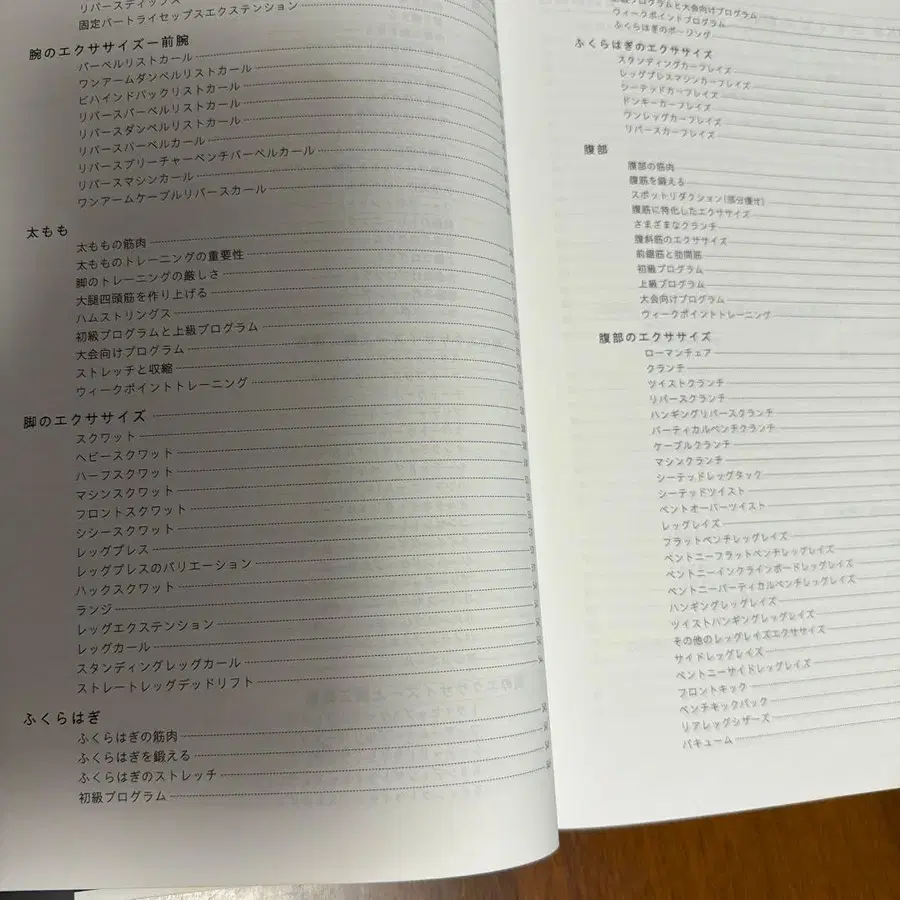 リバースディップス
固定バートライセップスエクステンション
腕のエクササイズー前腕
バーベルリストカール
ワンアームダンベルリストカール
ビハインドバックリストカール
リバースバーベルリストカール
リバースダンベルリストカール
リバースバーベルカール
リバースプリーチャーベンチバーベルカール
リバースマシンカール
ワンアームケーブルリバースカール
太もも
太ももの筋肉
太もものトレーニングの重要性
脚のトレーニングの厳しさ
大腿四頭筋を作り上げる
ハムストリングス
初級プログラムと上級プログラム
大会向けプログラム
ストレッチと収縮
ウィークポイントトレーニング
脚のエクササイズ
スクワット
ヘビースクワット
ハーフスクワット
マシンスクワット
フロントスクワット
シシースクワット
レッグプレス
レッグプレスのバリエーション
ハックスクワット
ランジ
レッグエクステンション
レッグカール
スタンディングレッグカール
ストレートレッグデッドリフト
ふくらはぎ
ふくらはぎの筋肉
ふくらはぎを鍛える
ふくらはぎのストレッチ
初級プログラム
上級プログラムと大会向けプログラム
ウィークポイントプログラム
ふくらはぎのポージング
ふくらはぎのエクササイズ
スタンディングカーフレイズ
レッグプレスマシンカーフレイズ
シーテッドカーフレイズ
ドンキーカーフレイズ
ワンレッグカーフレイズ
リバースカーフレイズ
腹部
腹部の筋肉
腹筋を鍛える
スポットリダクション(部分痩せ)
腹筋に特化したエクササイズ
さまざまなクランチ
腹斜筋のエクササイズ
前鋸筋と肋間筋
初級プログラム
上級プログラム
大会向けプログラム
ウィークポイントトレーニング
腹部のエクササイズ
ローマンチェア
クランチ
ツイストクランチ
リバースクランチ
ハンギングリバースクランチ
バーティカルベンチクランチ
ケーブルクランチ
マシンクランチ
シーテッドレッグタック
シーテッドツイスト
ベントオーバーツイスト
レッグレイズ
フラットベンチレッグレイズ
ベントニーフラットベンチレッグレイズ
ベントニーインクラインボードレッグレイズ
ベントニーバーティカルベンチレッグレイズ
ハンギングレッグレイズ
ツイストハンギングレッグレイズ
その他のレッグレイズエクササイズ
サイドレッグレイズ
ベントニーサイドレッグレイズ
フロントキック
ベンチキックバック
リアレッグシザーズ
バキューム